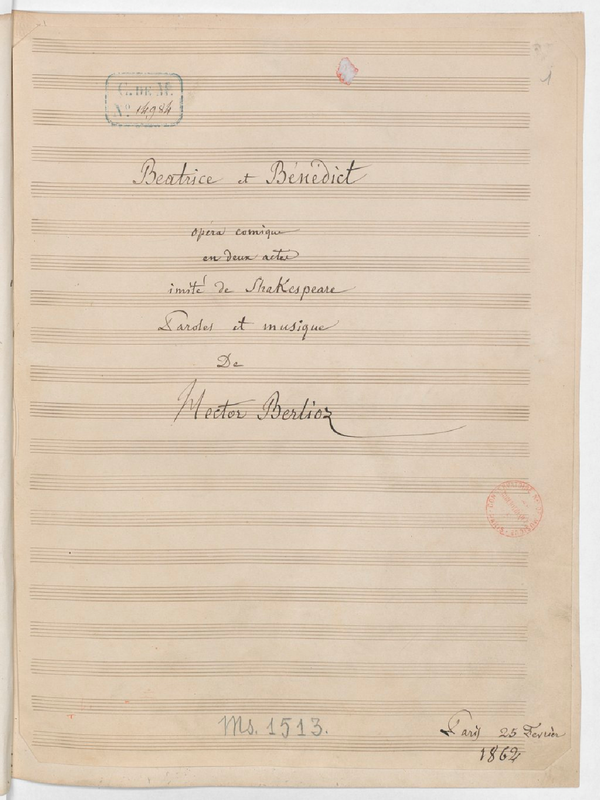 1
C. DE M.
No. 14984
Beatrice et Bénédict
opéra comique
en deux actes
imité de Shakespeare
Paroles et musique
De
Hector Berlioz
Ms. 1513.
Paris 25 Fevrier
1862